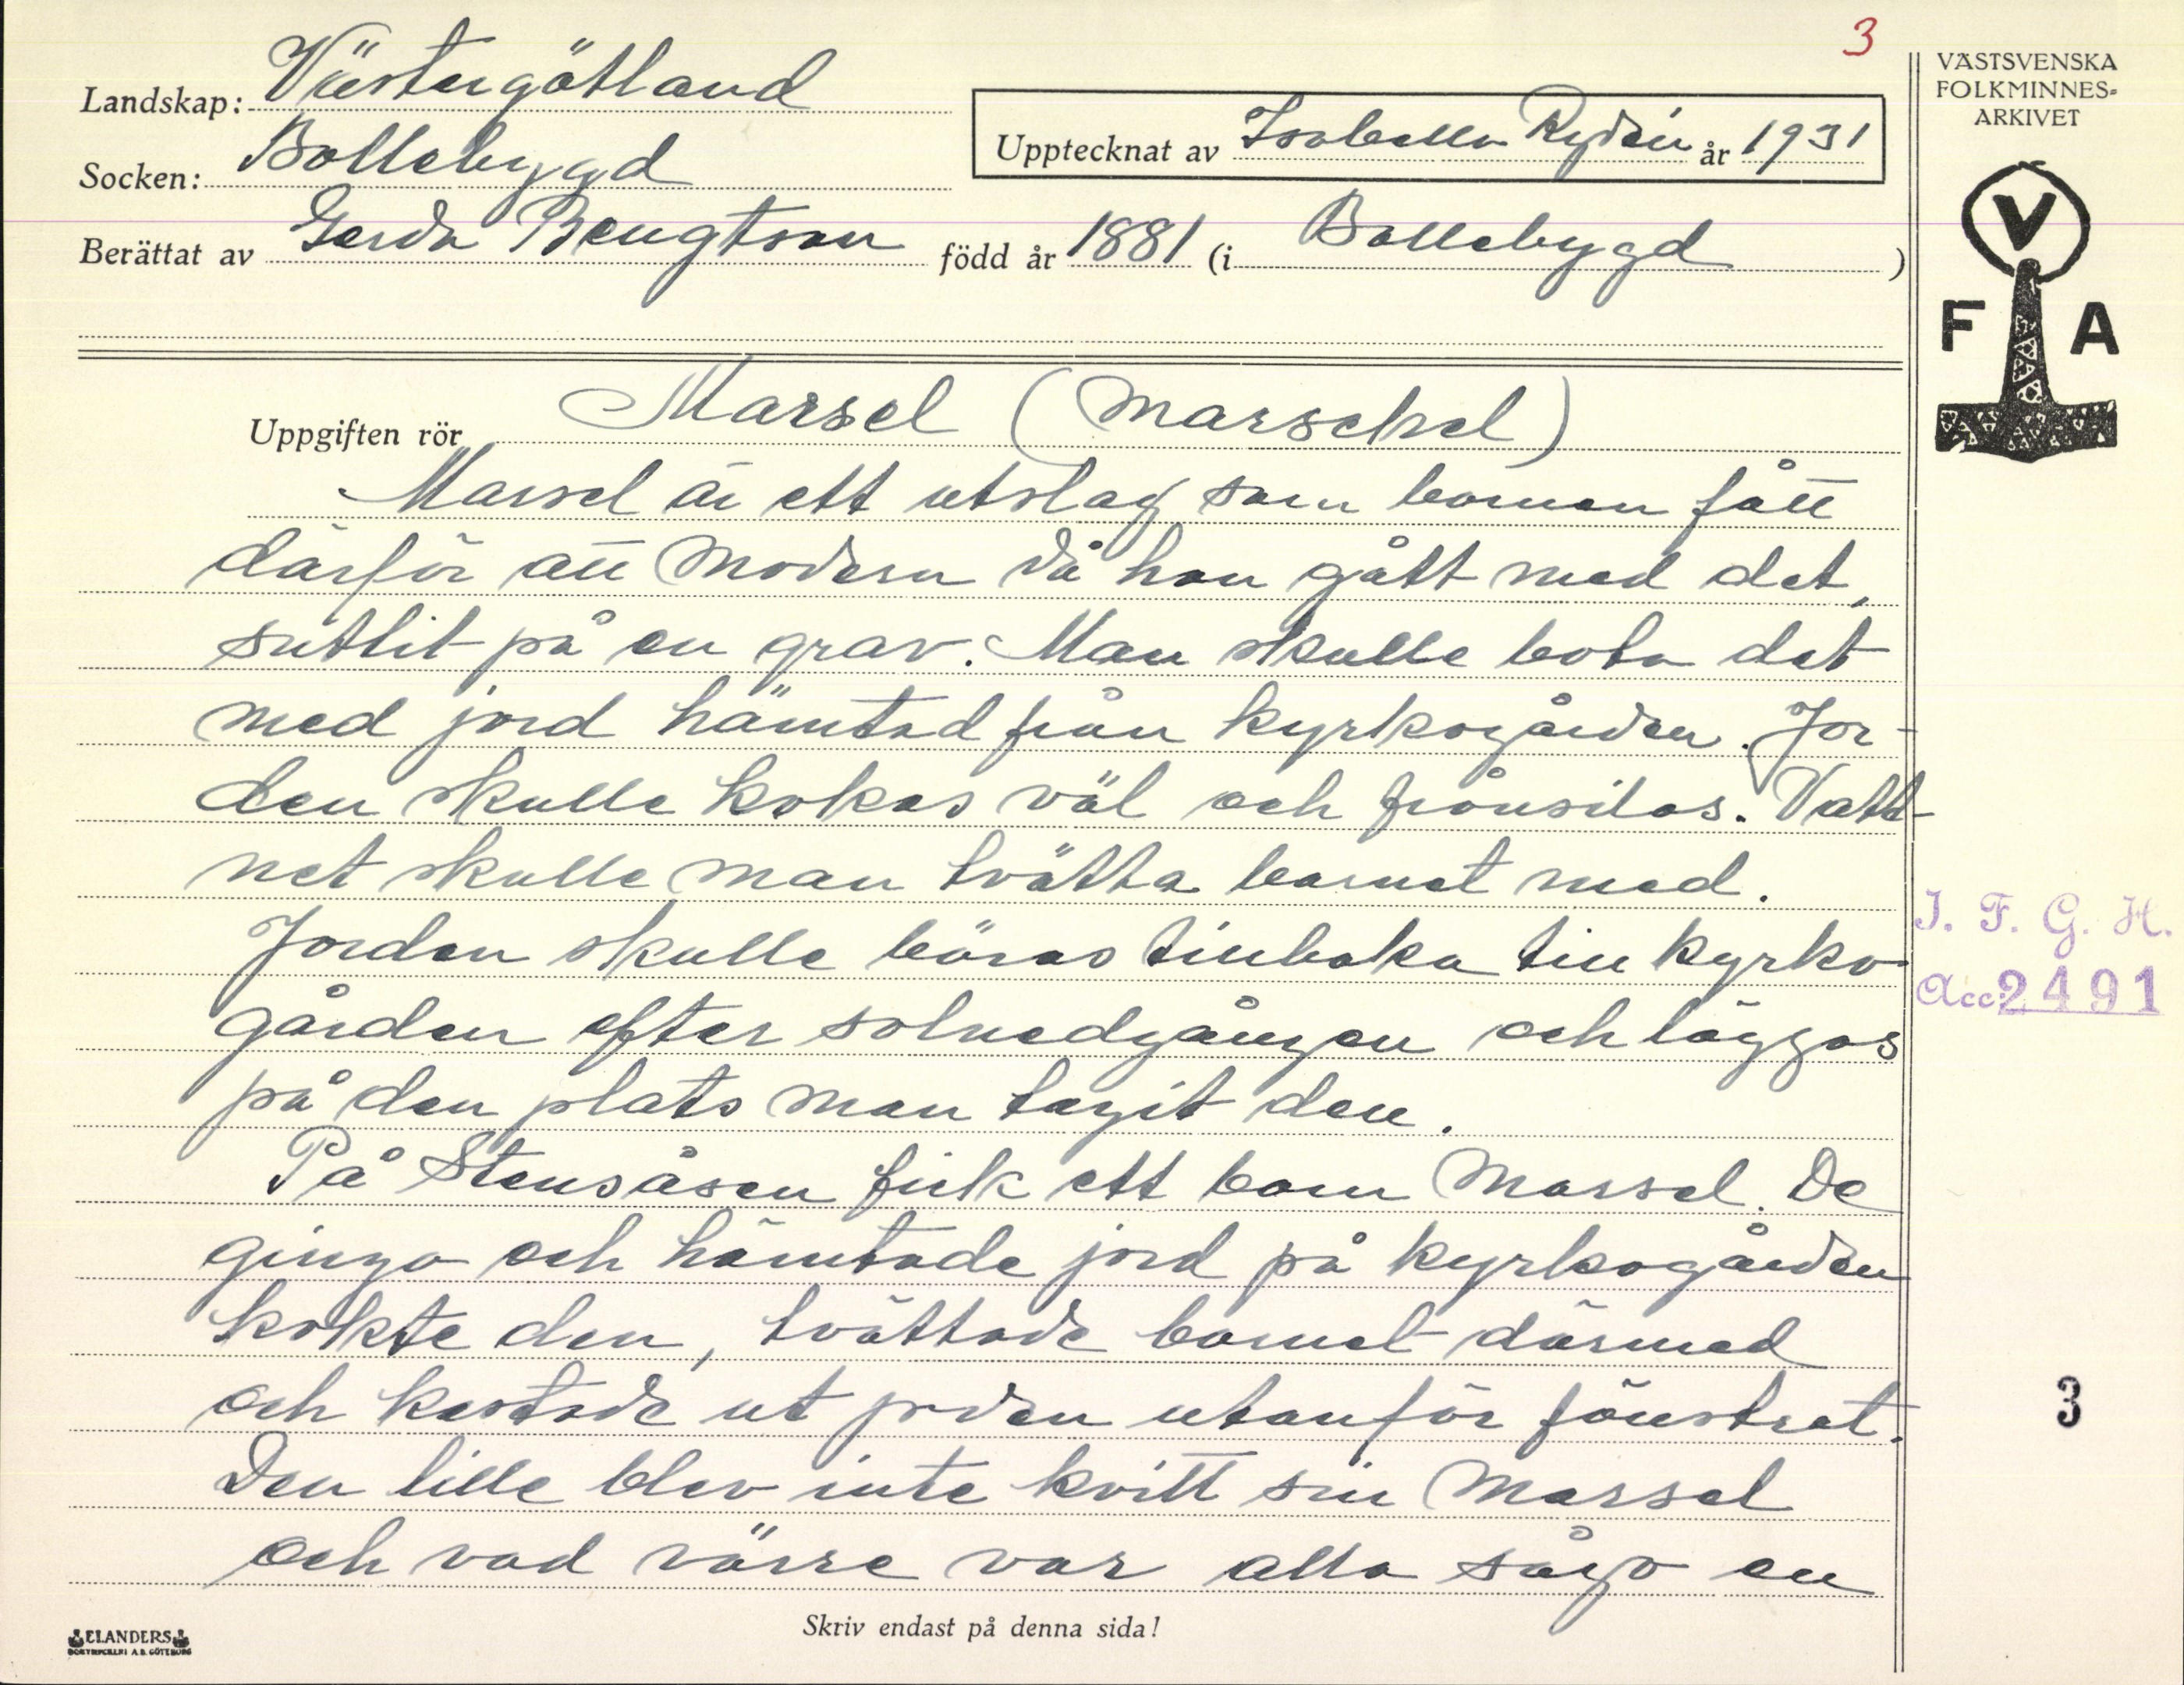 3
Landskap: Västergötland
Socken: Bollebygd
Upptecknat av Isabella Rydén år 1931
Berättat av Gerda Bengtson född år 1881 (i Bollebygd )
VÄSTSVENSKA
FOLKMINNES-
ARKIVET
V
F A
Uppgiften rör Marsel (marschel)
Marsel är ett utslag som barnen fått
därför att modern då hon gått med det,
suttit på en grav. Man skulle bota det
med jord hämtad från kyrkogården. Jor-
den skulle kokas väl och frånsilas. Vatt-
net skulle man tvätta barnet med.
Jorden skulle bäras tillbaka till kyrko-
gården efter solnedgången och läggas
på den plats man tagit den.
På Stensåsen fick ett barn marsel. De
gingo och hämtade jord på kyrkogården
kokte den, tvättade barnet därmed
och kastade ut jorden utanför fönstret.
Den lille blev inte kvitt sin marsel
och vad värre var alla sågo en
I. F. G. H.
Acc: 2491
3
Skriv endast på denna sida!
ELANDERS
BOKTRYCKERI A.B. GÖTEBORG